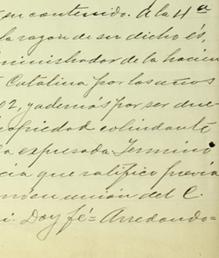 su contenido. A la 4ª
la razon de su dicho es,
ministrador de la hacien
Catalina por los años
02, y además por ser due
opiedad colindante
a expresada. Terminó
cia que ratificó previa
en union del C.
i. Doy fé = Arredondo =